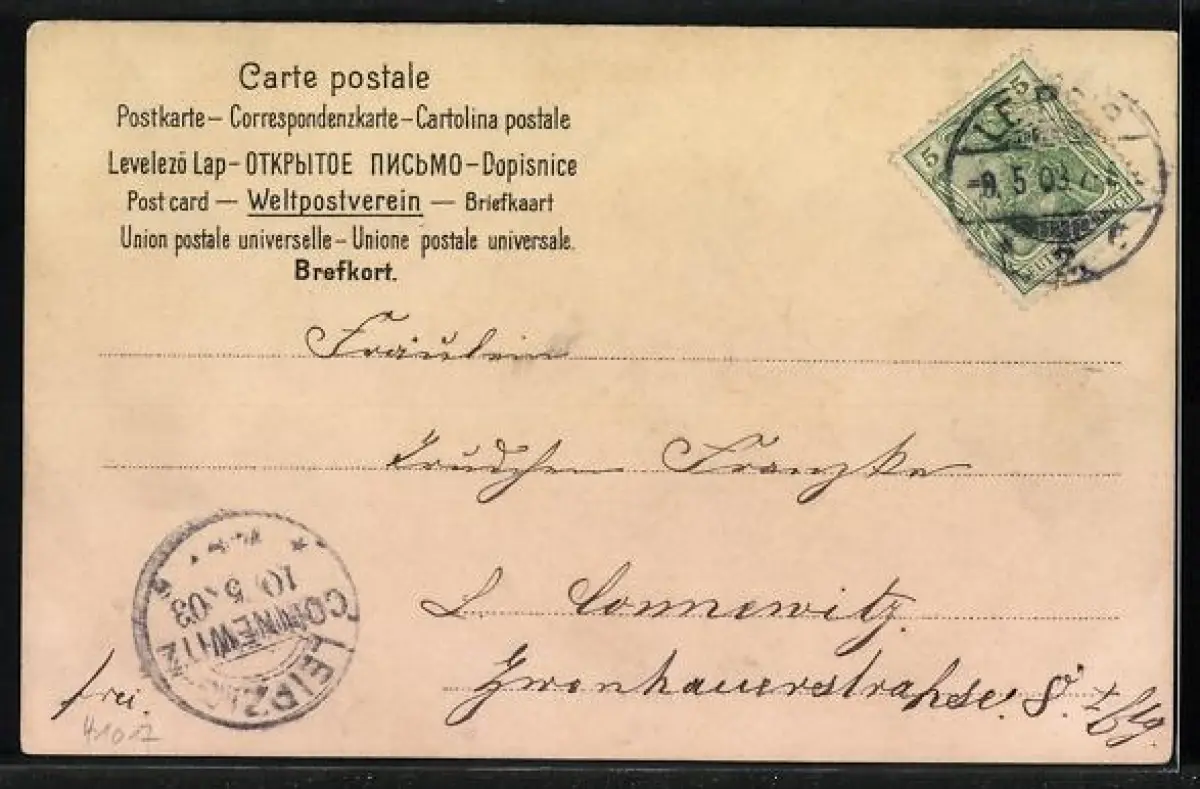 Carte postale
Postkarte – Correspondenzkarte – Cartolina postale
Levelező Lap – ОТКРЫТОЕ ПИСЬМО – Dopisnice
Post card — Weltpostverein — Briefkaart
Union postale universelle – Unione postale universale.
Brefkort.
5 5
LEIPZIG
5 03
Fräulein
Trudchen Franzke
L. Connewitz.
8.
frei.
LEIPZIG-
CONNEWITZ
10 5 03